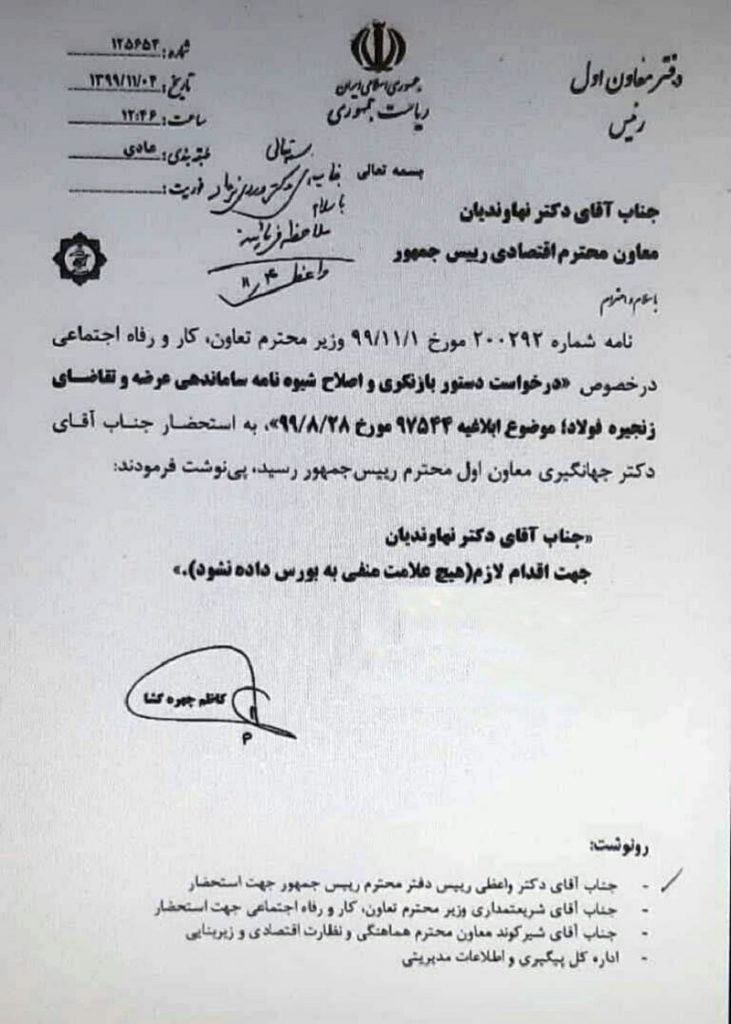 جمهوری اسلامی ایران
ریاست جمهوری
دفتر معاون اول
رئیس
شماره: ۱۲۵۶۵۴
تاریخ: ۱۳۹۹/۱۱/۰۴
ساعت: ۱۲:۴۶
طبقه بندی: عادی
فوریت:
بسمه تعالی
با سلام
ملاحظه فرمائید
واعظی
۱۱/۴
جناب آقای دکتر نهاوندیان
معاون محترم اقتصادی رییس جمهور
باسلام و احترام
نامه شماره ۲۰۰۲۹۲ مورخ ۹۹/۱۱/۱ وزیر محترم تعاون، کار و رفاه اجتماعی
درخصوص «درخواست دستور بازنگری و اصلاح شیوه نامه ساماندهی عرضه و تقاضای
زنجیره فولاد؛ موضوع ابلاغیه ۹۷۵۴۴ مورخ ۹۹/۸/۲۸»، به استحضار جناب آقای
دکتر جهانگیری معاون اول محترم رییس‌جمهور رسید، پی‌نوشت فرمودند:
«جناب آقای دکتر نهاوندیان
جهت اقدام لازم(هیچ علامت منفی به بورس داده نشود).»
کاظم چهره کشا
رونوشت:
- جناب آقای دکتر واعظی رییس دفتر محترم رییس جمهور جهت استحضار
- جناب آقای شریعتمداری وزیر محترم تعاون، کار و رفاه اجتماعی جهت استحضار
- جناب آقای شیرکوند معاون محترم هماهنگی و نظارت اقتصادی و زیربنایی
- اداره کل پیگیری و اطلاعات مدیریتی